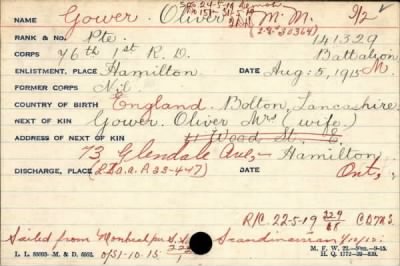 Sec 24-5-19
NAME Gower. Oliver (M. M. 9/2
(L.G. 30364)
RANK & NO. Pte. 141329
CORPS 76th 1st R. D. Battalion
ENLISTMENT, PLACE Hamilton DATE Aug: 5, 1915 M.
FORMER CORPS Nil
COUNTRY OF BIRTH England. Bolton, Lancashire
NEXT OF KIN Gower. Oliver Mrs (wife)
ADDRESS OF NEXT OF KIN 11 Wood St. E
73 Glendale Ave, - Hamilton
DISCHARGE, PLACE DATE Ont,
R/C. 22-5-19
Sailed from Montreal per S.S. Scandinavian
L. L. 55093-M. & D. 6992. M. F. W. 22-
H. Q. 1772-39-839.